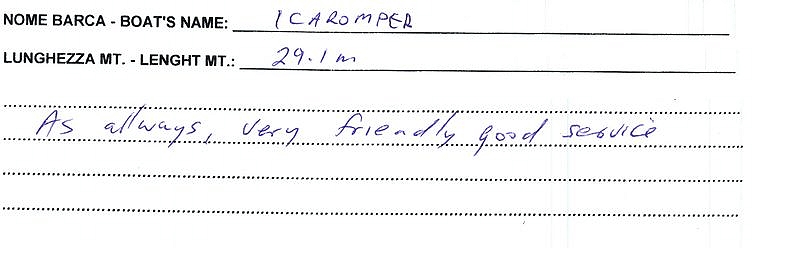 NOME BARCA - BOAT'S NAME: ICAROMPER
LUNGHEZZA MT. - LENGHT MT.: 29.1 m
As allways, very friendly good service